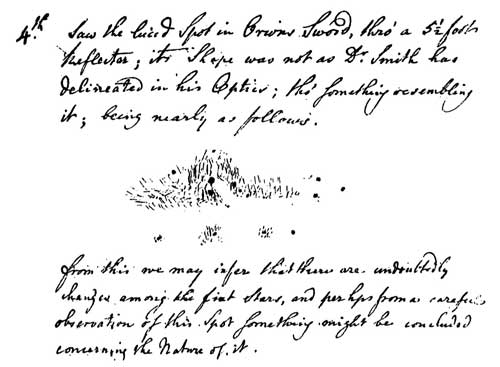 4.th Saw the lucid Spot in Orions Sword, thro' a 5½ foot
reflector; its Shape was not as Dr. Smith has
delineated in his Optics; tho' something resembling
it; being nearly as follows.
from this we may infer that there are undoubtedly
changes among the fixt Stars, and perhaps from a careful
observation of this Spot something might be concluded
concerning the Nature of it.